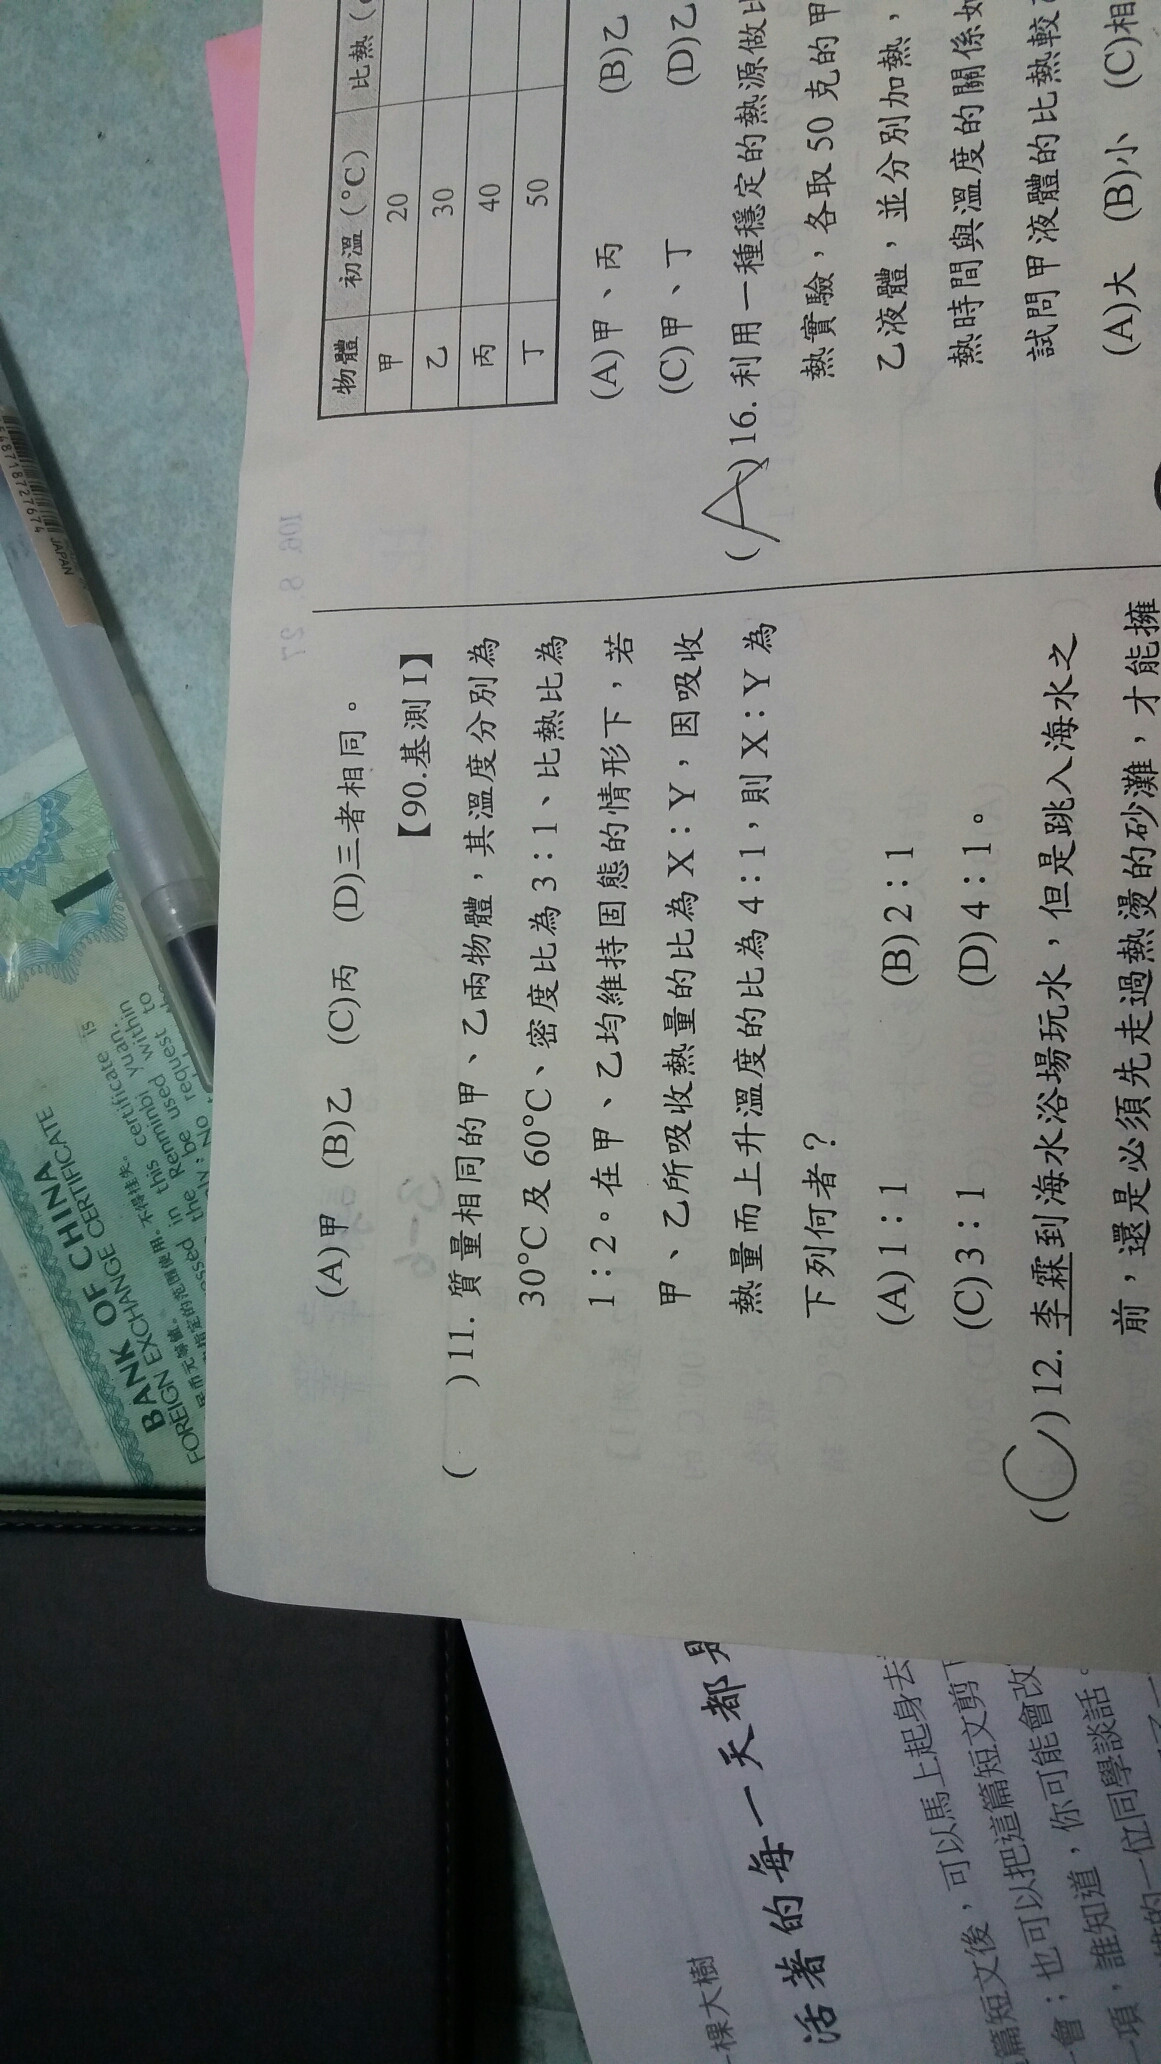 (A)甲 (B)乙 (C)丙 (D)三者相同。
【90.基測Ⅰ】
( )11. 質量相同的甲、乙兩物體,其溫度分別為
30°C及60°C、密度比為3:1、比熱比為
1:2。在甲、乙均維持固態的情形下,若
甲、乙所吸收熱量的比為X:Y,因吸收
熱量而上升溫度的比為4:1,則X:Y為
下列何者?
(A)1:1 (B)2:1
(C)3:1 (D)4:1。
(C)12. 李霖到海水浴場玩水,但是跳入海水之
前,還是必須先走過熱燙的砂灘,才能擁
物體 初溫(°C) 比熱(
甲 20
乙 30
丙 40
丁 50
(A)甲、丙 (B)乙
(C)甲、丁 (D)乙
(A)16. 利用一種穩定的熱源做比
熱實驗,各取50克的甲
乙液體,並分別加熱,
熱時間與溫度的關係如
試問甲液體的比熱較
(A)大 (B)小 (C)相
BANK OF CHINA
FOREIGN EXCHANGE CERTIFICATE
in this certificate is
the Renminbi yuan.
be used within
No request to
1
JAPAN
一棵大樹
活著的每一天都是
篇短文後,可以馬上起身去
會;也可以把這篇短文剪下
一項,誰知道,你可能會改
的一位同學談話。